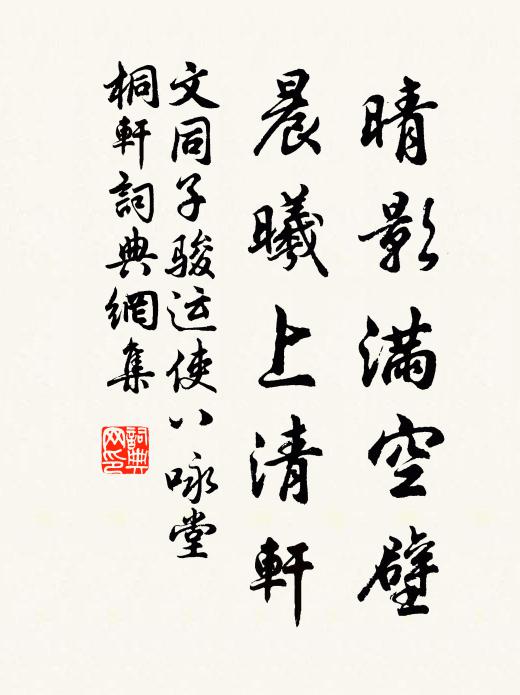 晴影满空壁
晨曦上清軒
文同子骏运使八咏堂
桐軒詞典網集
詞典
网印